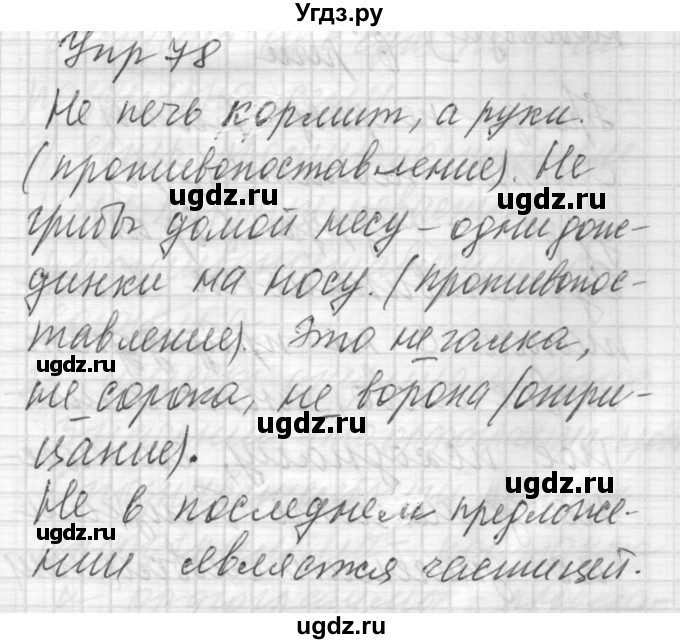 Угдз.ру
Упр 78
Не печь кормит, а руки.
(противопоставление). Не
ugdz.ru ugdz.ru
грибы домой несу – одни дож-
динки на носу. (противопос-
тавление). Это не галка,
ugdz.ru
не сорока, не ворона (отри-
ugdz.ru
цание).
ugdz.ru
Не в последнем предложе-
ugdz.ru
нии является частицей.
ugdz.ru ugdz.ru